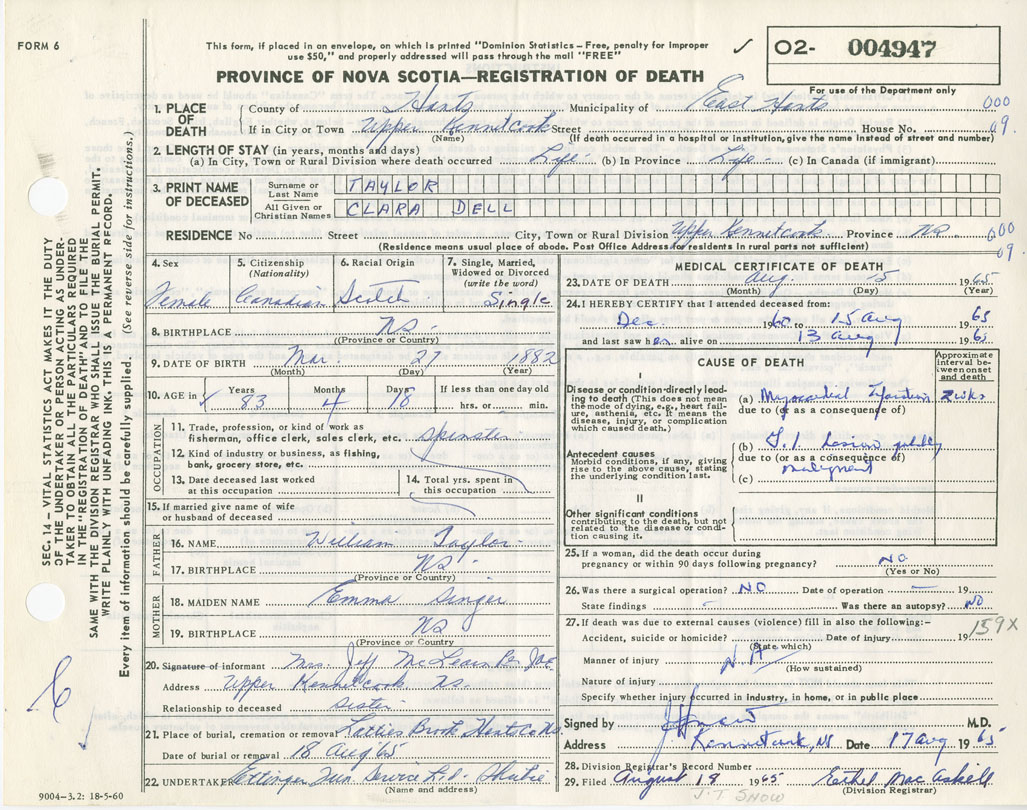 FORM 6
This form, if placed in an envelope, on which is printed "Dominion Statistics—Free, penalty for improper
use $50," and properly addressed will pass through the mail "FREE"
✓
O2- 004947
For use of the Department only
PROVINCE OF NOVA SCOTIA—REGISTRATION OF DEATH
1. PLACE OF DEATH { County of Hants Municipality of East Hants 000
If in City or Town Upper Kennetcook Street House No. 09.
(Name) (If death occurred in a hospital or institution, give the name instead of street and number)
2. LENGTH OF STAY (in years, months and days)
(a) In City, Town or Rural Division where death occurred Life - (b) In Province Life - (c) In Canada (if immigrant)
3. PRINT NAME OF DECEASED
Surname or Last Name TAYLOR
All Given or Christian Names CLARA DELL
RESIDENCE No Street City, Town or Rural Division Upper Kennetcook Province NS. 000
(Residence means usual place of abode. Post Office Address for residents in rural parts not sufficient) 09.
4. Sex Female
5. Citizenship (Nationality) Canadian
6. Racial Origin Scotch
7. Single, Married, Widowed or Divorced (write the word) Single
8. BIRTHPLACE NS -
(Province or Country)
9. DATE OF BIRTH Mar. 27 1882
(Month) (Day) (Year)
10. AGE in Years 83 Months 4 Days 18 If less than one day old hrs. or min.
OCCUPATION
11. Trade, profession, or kind of work as
fisherman, office clerk, sales clerk, etc. Spinster
12. Kind of industry or business, as fishing,
bank, grocery store, etc.
13. Date deceased last worked
at this occupation
14. Total yrs. spent in
this occupation
15. If married give name of wife
or husband of deceased
FATHER
16. NAME William Taylor
17. BIRTHPLACE NS -
(Province or Country)
MOTHER
18. MAIDEN NAME Emma Singer
19. BIRTHPLACE NS
(Province or Country)
20. Signature of informant Mrs. Jeff McLearn Per
Address Upper Kennetcook NS.
Relationship to deceased sister
21. Place of burial, cremation or removal Latties Brook Hants Co NS.
Date of burial or removal 18 Aug '65
22. UNDERTAKER Ettinger Fun Service Ltd. Shubie
(Name and address)
MEDICAL CERTIFICATE OF DEATH
23. DATE OF DEATH Aug. 15 1965
(Month) (Day) (Year)
24. I HEREBY CERTIFY that I attended deceased from:
Dec. 19 to 15 Aug 1965
and last saw her alive on 13 Aug 1965
CAUSE OF DEATH
Approximate interval between onset and death
I
Disease or condition directly leading
to death (This does not mean
the mode of dying, e.g., heart failure,
asthenia, etc. It means the
disease, injury, or complication
which caused death.)
(a) Myocardial
due to (or as a consequence of)
Antecedent causes
Morbid conditions, if any, giving
rise to the above cause, stating
the underlying condition last.
(b) G.I. Lesion probably
due to (or as a consequence of)
malignant
(c)
II
Other significant conditions
contributing to the death, but not
related to the disease or condition
causing it.
25. If a woman, did the death occur during
pregnancy or within 90 days following pregnancy? NO
(Yes or No)
26. Was there a surgical operation? NO Date of operation — 19
State findings - Was there an autopsy? NO
27. If death was due to external causes (violence) fill in also the following:-
Accident, suicide or homicide? Date of injury 19 159X
(State which)
Manner of injury NA
(How sustained)
Nature of injury
Specify whether injury occurred in industry, in home, or in public place
Signed by M.D.
Address Kennetcook, NS Date 17 Aug 1965
28. Division Registrar's Record Number
29. Filed August 18 1965 Ethel MacAskill
(Division Registrar)
J.T SNOW
SEC. 14—VITAL STATISTICS ACT MAKES IT THE DUTY
OF THE UNDERTAKER OR PERSON ACTING AS UNDER-
TAKER TO OBTAIN ALL THE PARTICULARS REQUIRED
IN THE "REGISTRATION OF DEATH" AND TO FILE THE
SAME WITH THE DIVISION REGISTRAR WHO SHALL ISSUE THE BURIAL PERMIT.
WRITE PLAINLY WITH UNFADING INK. THIS IS A PERMANENT RECORD.
Every item of information should be carefully supplied. (See reverse side for instructions.)
9004—3.2: 18-5-60